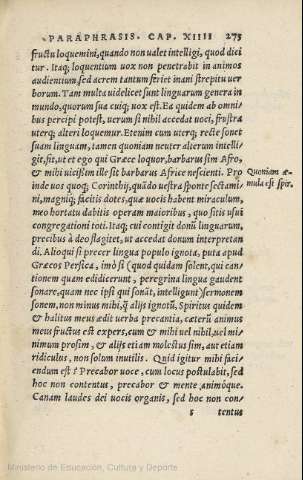 PARAPHRASIS. CAP. XIIII 275
fructu loquemini, quando non ualet intelligi, quod dici
tur. Itaq; loquentium uox non penetrabit in animos
audientium, sed aerem tantum feriet inani strepitu uer
borum. Tam multa uidelicet sunt linguarum genera in
mundo, quorum sua cuiq; uox est. Ea quidem ab omni/
bus percipi potest, uerum si nihil accedat uoci, frustra
uterq; alteri loquemur. Etenim cum uterq; recte sonet
suam linguam, tamen quoniam neuter alterum intelli/
git, fit, ut et ego qui Græce loquor, barbarus sim Afro,
& mihi uicissim ille sit barbarus Africe nescienti. Pro
inde uos quoq; Corinthij, quādo uestra sponte sectami
ni, magniq; facitis dotes, quæ uocis habent miraculum,
meo hortatu dabitis operam maioribus, quo sitis usui
congregationi toti. Itaq; cui contigit donū linguarum,
precibus à deo flagitet, ut accedat donum interpretan
di. Alioqui si precer lingua populo ignota, puta apud
Græcos Persica, imò si (quod quidam solent, qui can/
tionem quam edidicerunt, peregrina lingua gaudent
sonare, quam nec ipsi qui sonāt, intelligunt) sermonem
sonem, non minus mihi, q̃ alijs ignotū, Spiritus quidem
& halitus meus ædit uerba precantia, cæterū animus
meus fructus est expers, cum & mihi uel nihil, uel mi/
nimum prosim, & alijs etiam molestus sim, aut etiam
ridiculus, non solum inutilis. Quid igitur mihi faci/
endum est? Precabor uoce, cum locus postulabit, sed
hoc non contentus, precabor & mente, animóque.
Canam laudes dei uocis organis, sed hoc non con/
s tentus
Quoniam æ-
mula est spir.
Ministerio de Educación, Cultura y Deporte